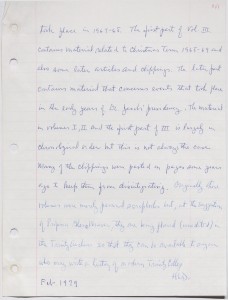 took place in 1967-68. The first part of Vol. III
contains material related to Christmas Term 1968-69 and
also some later articles and clippings. The later part
contains material that concerns events that took place
in the early years of Dr. 's presidency. The material
in volumes I, II and the first part of III is largely in
chronological order but this is not always the case.
Many of the clippings were pasted on pages some years
ago to keep them from disintegrating. Originally these
volumes were merely personal scrapbooks but, at the suggestion
of, they are being placed in
the so that they can be available to anyone
who may write a history of
Feb. 1979